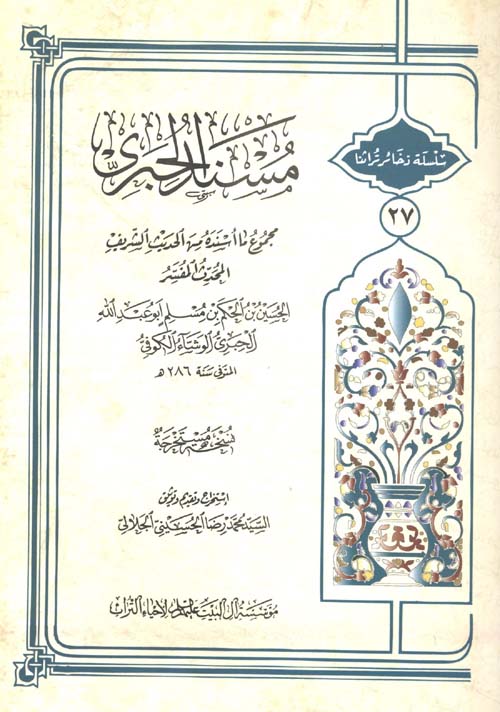 سلسلة ذخائر تراثنا
٢٧
مسند الحبري
مجموع ما أسنده من الحديث الشريف
المحدث المفسر
الحسين بن الحكم بن مسلم أبو عبد الله
الحبري الوشاء الكوفي
المتوفى سنة ٢٨٦ هـ
نسخة مستخرجة
استخراج وتقديم وتوثيق
السيد محمد رضا الحسيني الجلالي
مؤسسة آل البيت عليهم السلام لإحياء التراث